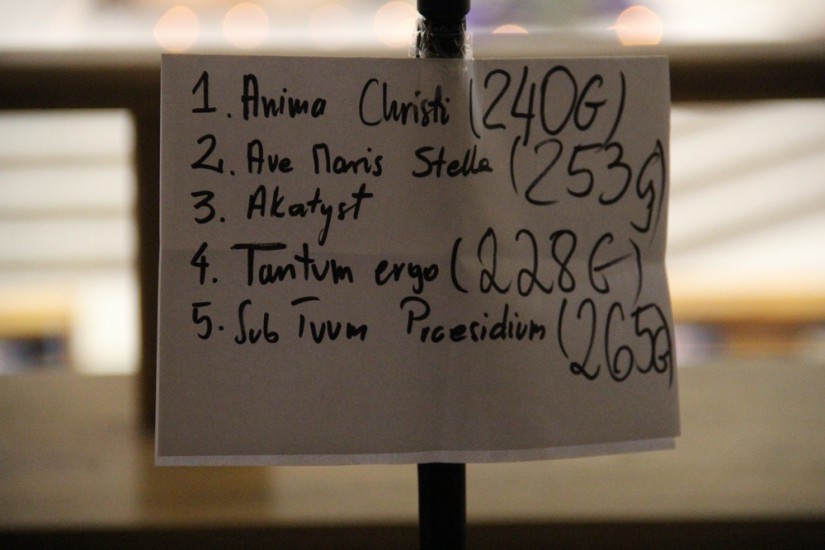 1. Anima Christi (240G)
2. Ave Maris Stella (253g)
3. Akatyst
4. Tantum ergo (228G)
5. Sub Tuum Praesidium (265G)